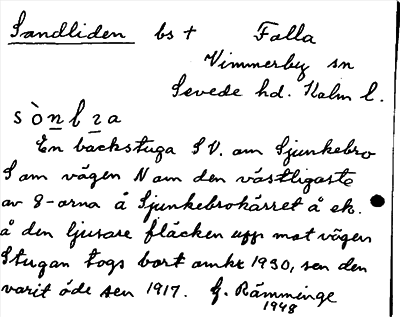 Sandliden bs + Falla
Vimmerby sn
Sevede hd. Kalm l.
sònḻa
En backstuga SV. om Sjunkebro
S om vägen N om den västligaste
av 8-orna å Sjunkebrokärret å ek.
å den ljusare fläcken upp mot vägen
Stugan togs bort omkr 1930, sen den
varit öde sen 1917. G. Rämminge
1948